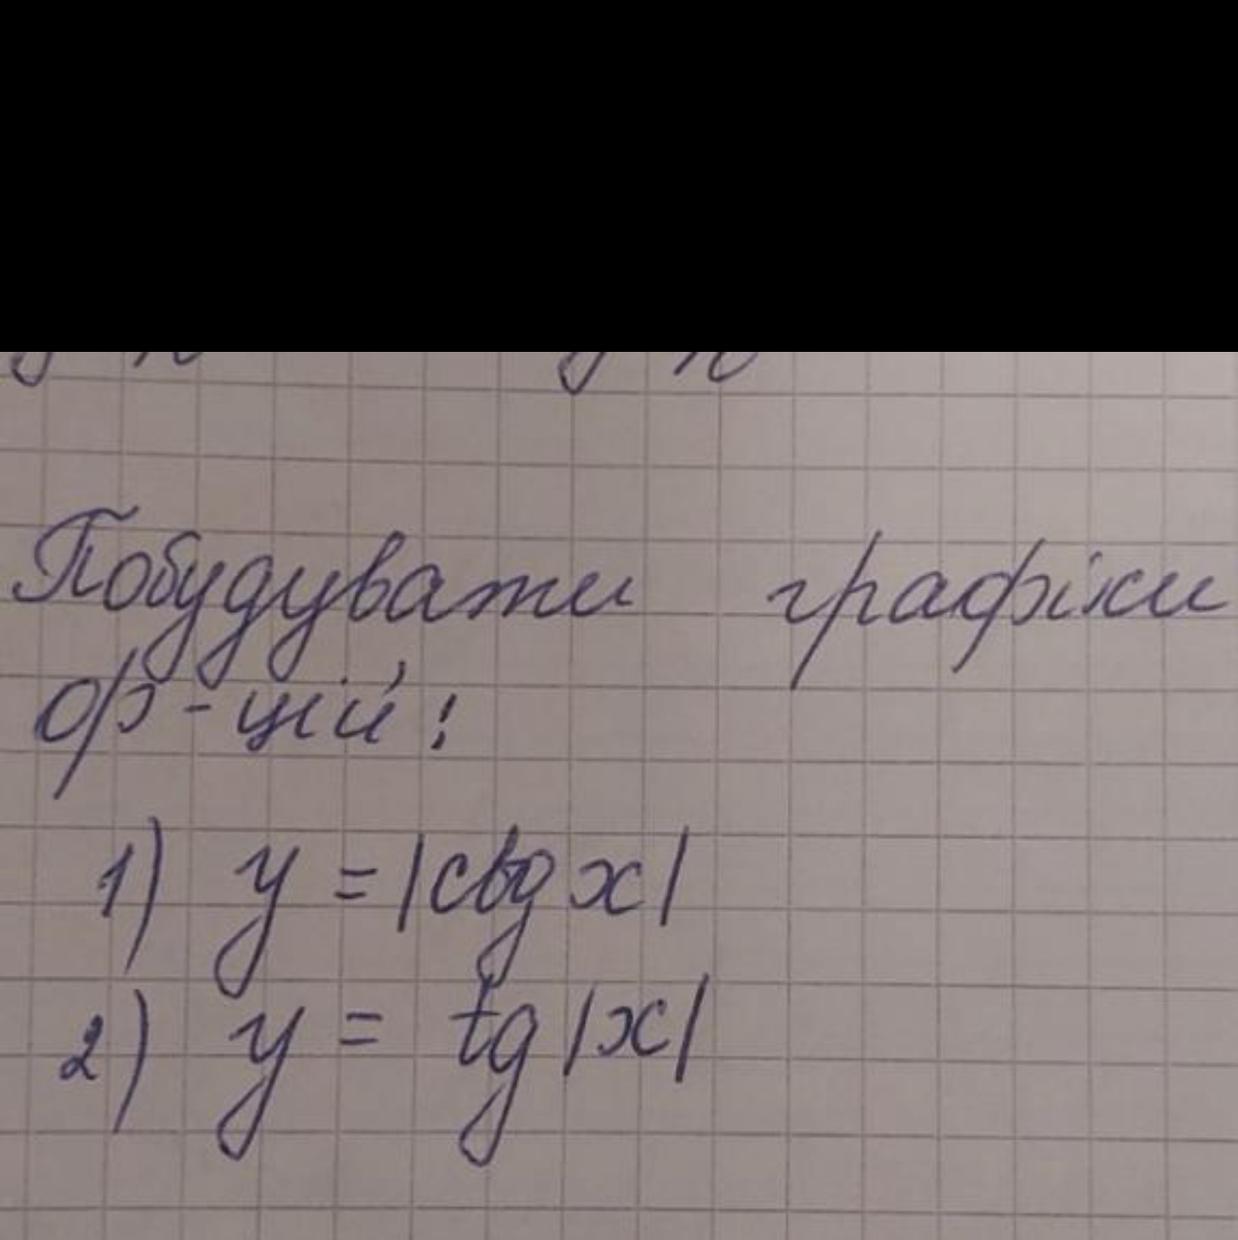 Побудувати графіки
ф-цій:
1) y = |ctg x|
2) y = tg |x|